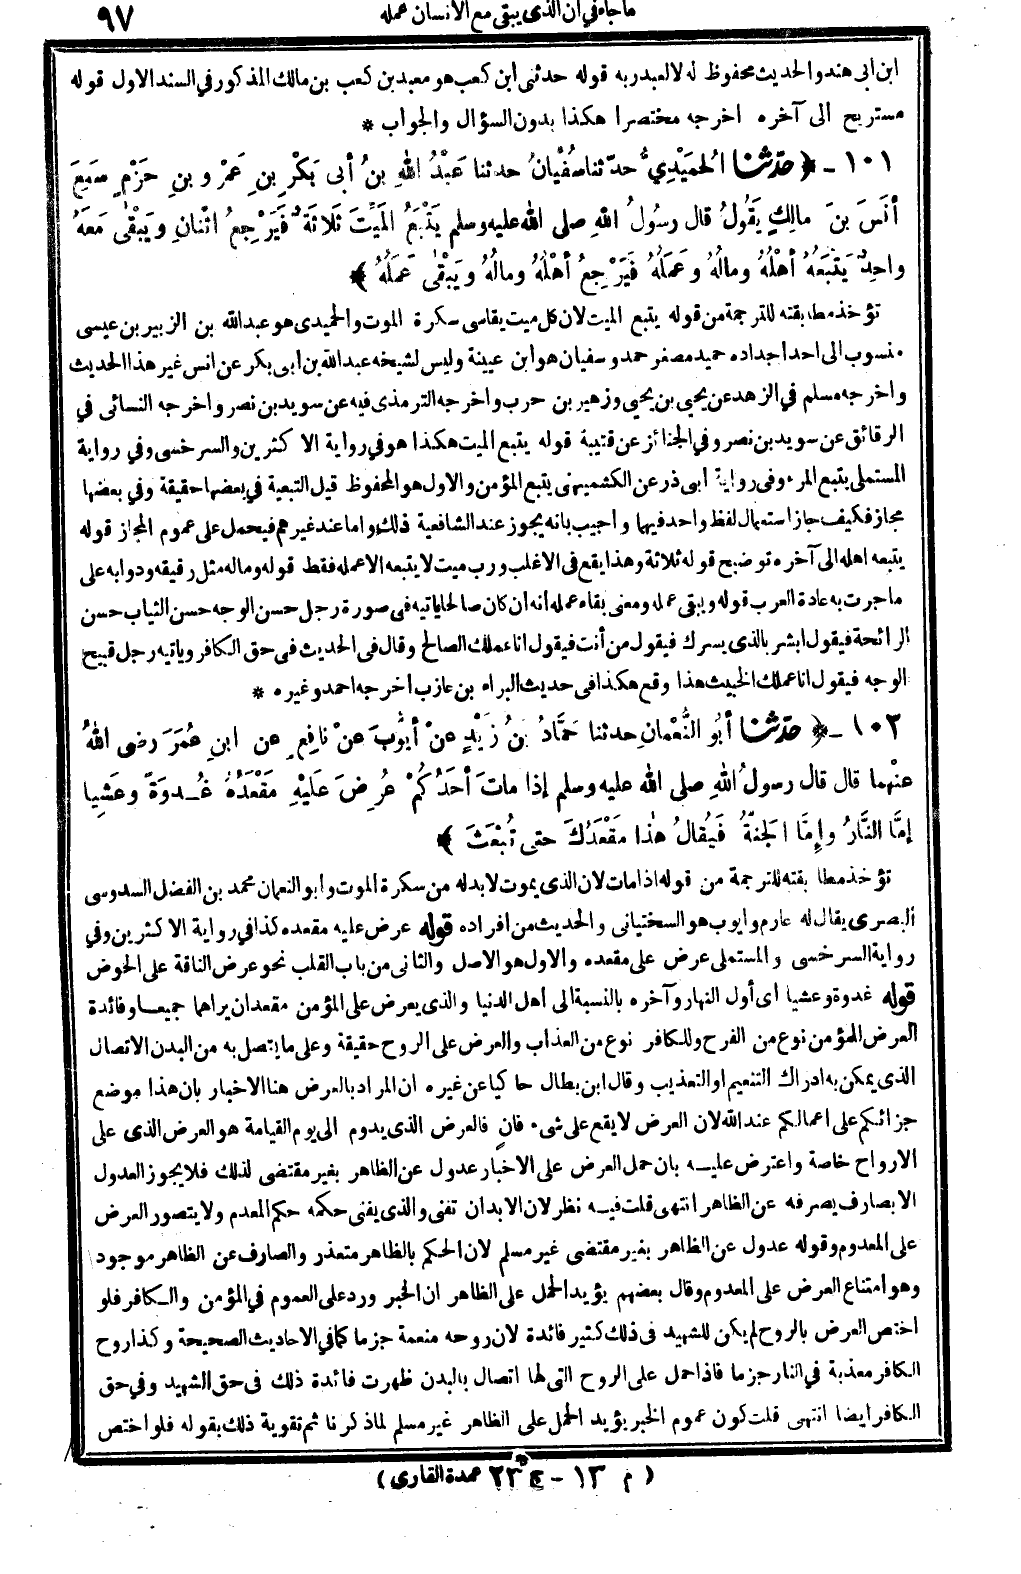 ما جاء في ان الذي يبقى مع الانسان عمله
٩٧
ابن ابى هند والحديث محفوظ له لا لعبد ربه قوله حدثنى ابن كعب هو معبد بن كعب بن مالك المذكور في السند الاول قوله
مستريح الى آخره اخرجه مختصرا هكذا بدون السؤال والجواب *
١٠١ - ﴿ حدّثنا الحُمَيْدِيُّ حدّثنا سُفْيانُ حدثنا عَبْدُ اللهِ بنُ أبى بَكْرِ بنِ عَمْرِو بنِ حَزْمٍ سَمِعَ
أنَسَ بنَ مالِكٍ يَقُولُ قال رسُولُ اللهِ صلى الله عليه وسلم يَتْبَعُ المَيِّتَ ثَلاثَةٌ فَيَرْجِعُ اثْنانِ ويَبْقٰى مَعَهُ
واحِدٌ يَتْبَعُهُ أهْلُهُ ومالُهُ وعَمَلُهُ فَيَرْجِعُ أهْلُهُ ومالُهُ ويَبْقٰى عَمَلُهُ ﴾
تؤخذ مطابقته للترجمة من قوله يتبع الميت لان كل ميت يقاسى سكرة الموت والحميدى هو عبدالله بن الزبير بن عيسى
منسوب الى احد اجداده حميد مصغر حمد وسفيان هو ابن عيينة وليس لشيخه عبدالله بن ابى بكر عن انس غير هذا الحديث
واخرجه مسلم في الزهد عن يحيى بن يحيى وزهير بن حرب واخرجه الترمذى فيه عن سويد بن نصر واخرجه النسائى في
الرقائق عن سويد بن نصر وفي الجنائز عن قتيبة قوله يتبع الميت هكذا هو في رواية الاكثرين والسرخسى وفي رواية
المستملى يتبع المرء وفى رواية أبى ذر عن الكشميهنى يتبع المؤمن والاول هو المحفوظ قيل التبعية في بعضها حقيقة وفي بعضها
مجاز فكيف جاز استعمال لفظ واحد فيهما واجيب بانه يجوز عند الشافعية ذلك واما عند غيرهم فيحمل على عموم المجاز قوله
يتبعه اهله الى آخره توضيح قوله ثلاثة وهذا يقع فى الاغلب ورب ميت لا يتبعه الا عمله فقط قوله وماله مثل رقيقه ودوابه على
ماجرت به عادة العرب قوله ويبقى عمله ومعنى بقاء عمله أنه ان كان صالحا ياتيه فى صورة رجل حسن الوجه حسن الثياب حسن
الرائحة فيقول ابشر بالذى يسرك فيقول من أنت فيقول انا عملك الصالح وقال فى الحديث فى حق الكافر وياتيه رجل قبيح
الوجه فيقول انا عملك الخبيث هذا وقع هكذا فى حديث البراء بن عازب اخرجه احمد وغيره *
١٠٢ - ﴿ حدّثنا أبُو النُّعْمانِ حدثنا حَمَّادُ بنُ زَيْدٍ عنْ أيُّوبَ عنْ نافِعٍ عن ابنِ عُمَرَ رضى اللهُ
عنْهما قال قال رسولُ اللهِ صلى الله عليه وسلم إذا ماتَ أحَدُكُمْ عُرِضَ عَلَيْهِ مَقْعَدُهُ غُدوَةً وعَشِيا
إمَّا النَّارُ وإمَّا الجَنَّةُ فَيُقالُ هٰذا مَقْعَدُكَ حتى تُبْعَثَ ﴾
تؤخذ مطابقته للترجمة من قوله اذا مات لان الذى يموت لابد له من سكرة الموت وابو النعمان محمد بن الفضل السدوسى
البصرى يقال له عارم وايوب هو السختيانى والحديث من افراده قوله عرض عليه مقعده كذا في رواية الاكثرين وفي
رواية السرخسى والمستملى عرض على مقعده والاول هو الاصل والثانى من باب القلب نحو عرض الناقة على الحوض
قوله غدوة وعشيا اى أول النهار وآخره بالنسبة الى أهل الدنيا والذى يعرض على المؤمن مقعدان يراهما جميعا وفائدة
العرض للمؤمن نوع من الفرح وللكافر نوع من العذاب والعرض على الروح حقيقة وعلى ما يتصل به من البدن الاتصال
الذى يمكن به ادراك التنعيم او التعذيب وقال ابن بطال حاكيا عن غيره ان المراد بالعرض هنا الاخبار بان هذا موضع
جزائكم على اعمالكم عند الله لان العرض لا يقع على شىء فان فالعرض الذى يدوم الى يوم القيامة هو العرض الذى على
الارواح خاصة واعترض عليه بان حمل العرض على الاخبار عدول عن الظاهر بغير مقتضى لذلك فلا يجوز العدول
الا بصارف يصرفه عن الظاهر انتهى قلت فيه نظر لان الابدان تفنى والذى يفنى حكمه حكم المعدم ولا يتصور العرض
على المعدوم وقوله عدول عن الظاهر بغير مقتضى غير مسلم لان الحكم بالظاهر متعذر والصارف عن الظاهر موجود
وهو امتناع العرض على المعدوم وقال بعضهم يؤيد الحمل على الظاهر ان الخبر ورد على العموم في المؤمن والكافر فلو
اختص العرض بالروح لم يكن للشهيد فى ذلك كثير فائدة لان روحه منعمة جزما كما في الاحاديث الصحيحة وكذا روح
الكافر معذبة في النار جزما فاذا حمل على الروح التى لها اتصال بالبدن ظهرت فائدة ذلك فى حق الشهيد وفي حق
الكافر ايضا انتهى قلت كون عموم الخبر يؤيد الحمل على الظاهر غير مسلم لما ذكرنا ثم تقوية ذلك بقوله فلو اختص
( م ١٣ - ج ٢٣ عمدة القارى )